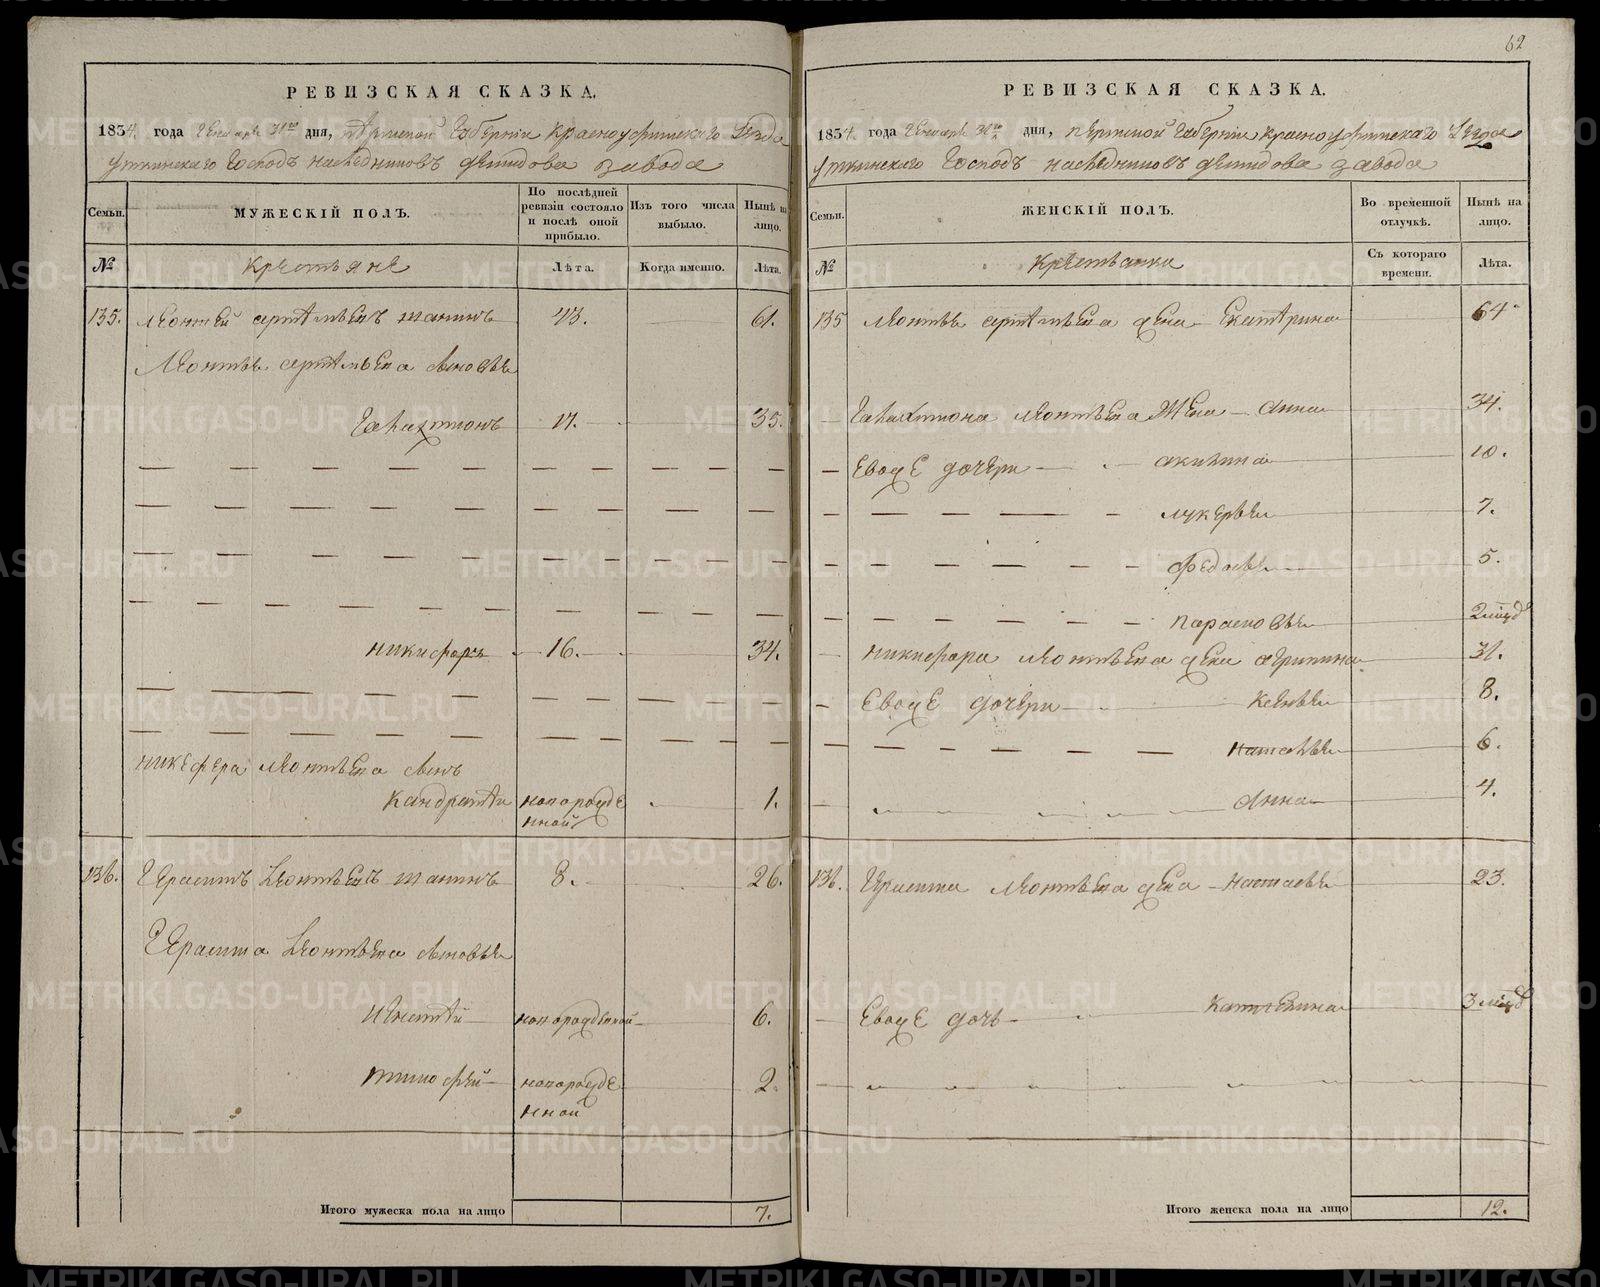 62
РЕВИЗСКАЯ СКАЗКА.
1834. года Генваря 31го дня, Пермской Губерніи Красноуфимскаго Уезда
Уткинскаго Господъ наследниковъ демидова завода
Семьи.
МУЖЕСКІЙ ПОЛЪ.
По послѣдней ревизіи состояло и послѣ оной прибыло.
Изъ того числа выбыло.
Нынѣ на лицо.
№
Крестьяне
Лѣта.
Когда именно.
Лѣта.
135. Леонтей Артемьевъ 43. 61.
Леонтья Артемьева сыновья
Галахтионъ 17. 35.
Никифоръ 16. 34.
Никефера Леонтьева сынъ
Кандратей новорожденной 1.
136. Герасимъ Леонтьевъ 8. 26.
Герасима Леонтьева сыновья
Игнатей новорожденной 6.
Тимофей новорожденной 2.
Итого мужеска пола на лицо 7.
РЕВИЗСКАЯ СКАЗКА.
1834. года Генваря 31го дня, Пермской Губерніи Красноуфимскаго Уезда
Уткинскаго Господъ наследниковъ демидова завода
Семьи.
ЖЕНСКІЙ ПОЛЪ.
Во временной отлучкѣ.
Нынѣ на лицо.
№
Крестьянки
Съ котораго времени.
Лѣта.
135 Леонтья Артемьева жена Екатерина 64
Галахтиона Леонтьева Жена Анна 34.
Евоже дочери Акилина 10.
Лукерья 7.
Федосья 5.
Парасковья 2
Никифора Леонтьева жена Агрипина 31.
Евоже дочери Ксенья 8.
Наталья 6.
Анна 4.
136. Герасима Леонтьева жена Настасья 23.
Евоже дочь Катерина 3
Итого женска пола на лицо 12.
METRIKI.GASO-URAL.RU